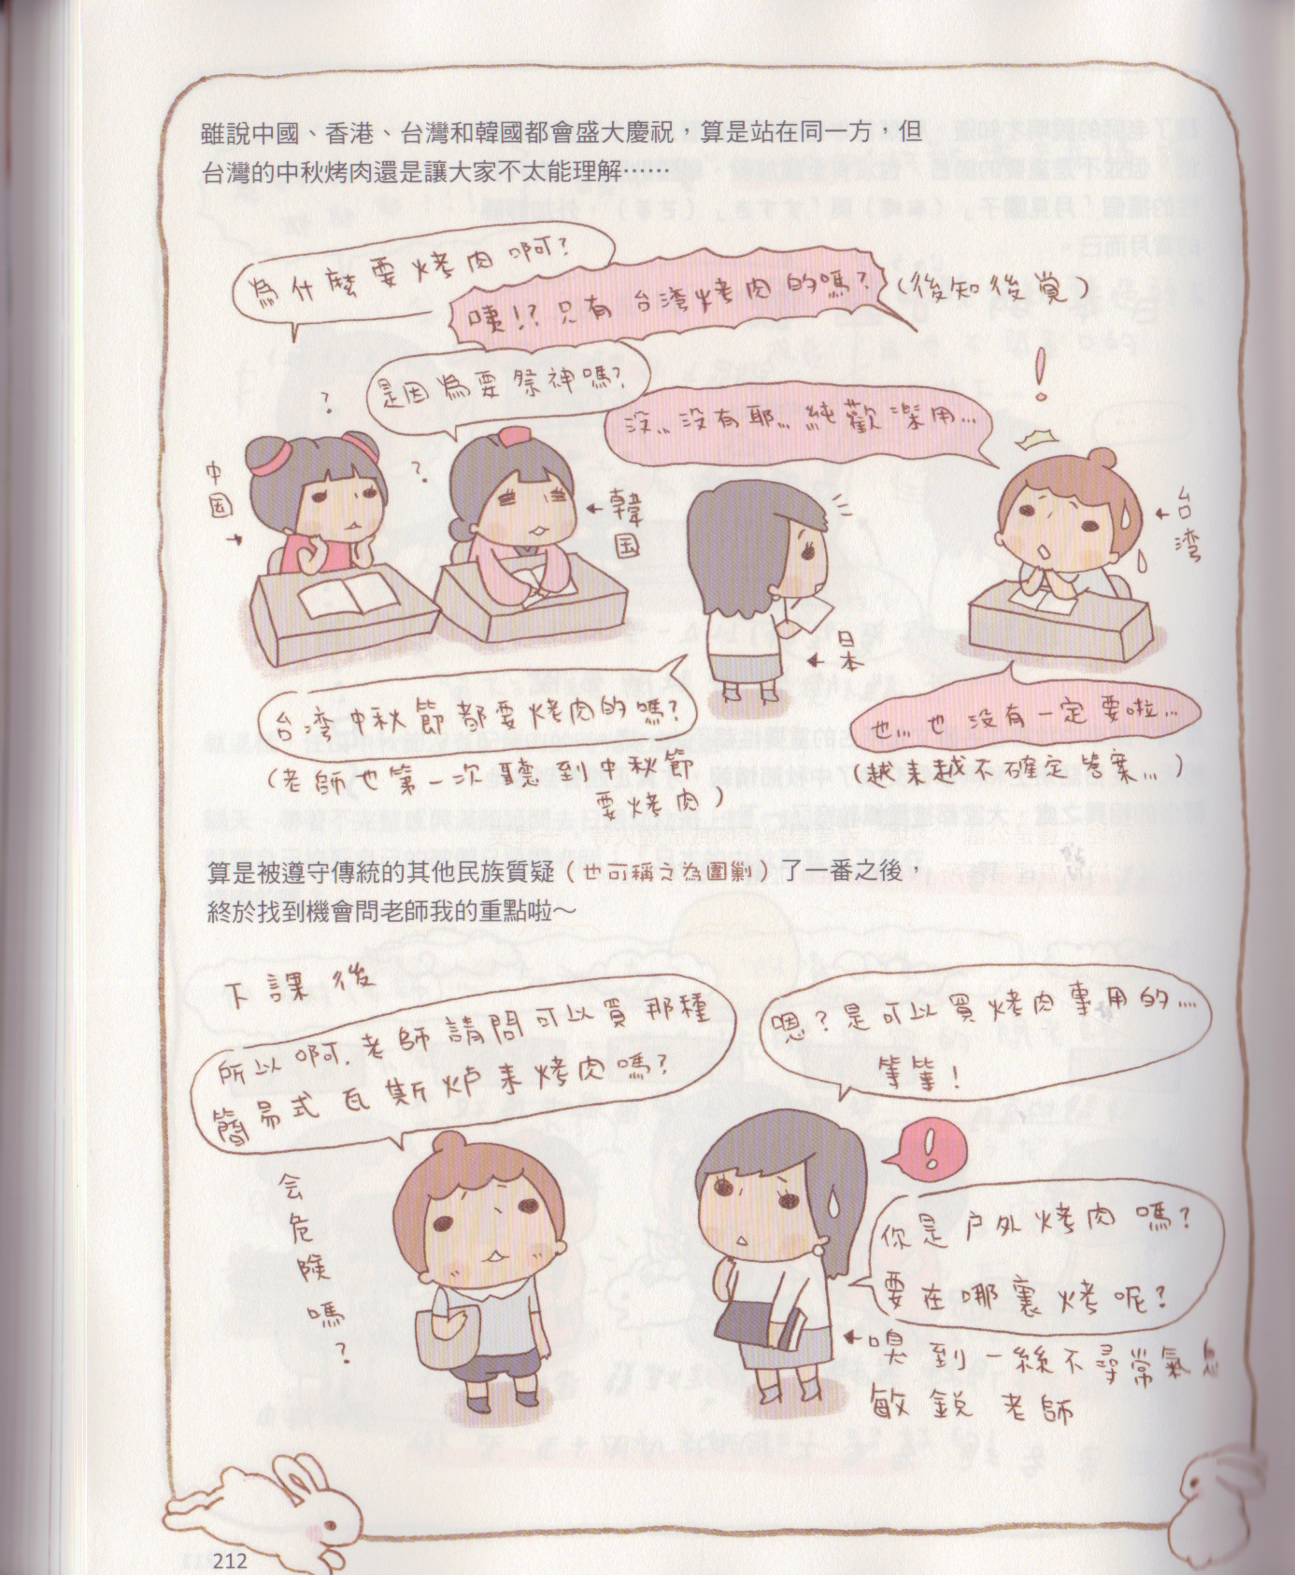 雖說中國、香港、台灣和韓國都會盛大慶祝，算是站在同一方，但
台灣的中秋烤肉還是讓大家不太能理解……
為什麼要烤肉啊？
咦！？只有台湾烤肉的嗎？
（後知後覺）
是因為要祭神嗎？
沒…沒有耶…純歡樂用…
？
？
！
中国
韓国
日本
台湾
台湾中秋節都要烤肉的嗎？
（老師也第一次聽到中秋節
要烤肉）
也…也没有一定要啦…
（越来越不確定答案…）
算是被遵守傳統的其他民族質疑（也可稱之為圍剿）了一番之後，
終於找到機會問老師我的重點啦～
下課後
所以啊，老師請問可以買那種
簡易式瓦斯炉来烤肉嗎？
会危険嗎？
嗯？是可以買烤肉專用的…
等等！
！
你是户外烤肉嗎？
要在哪裏烤呢？
嗅到一絲不尋常氣息
敏銳老師
212